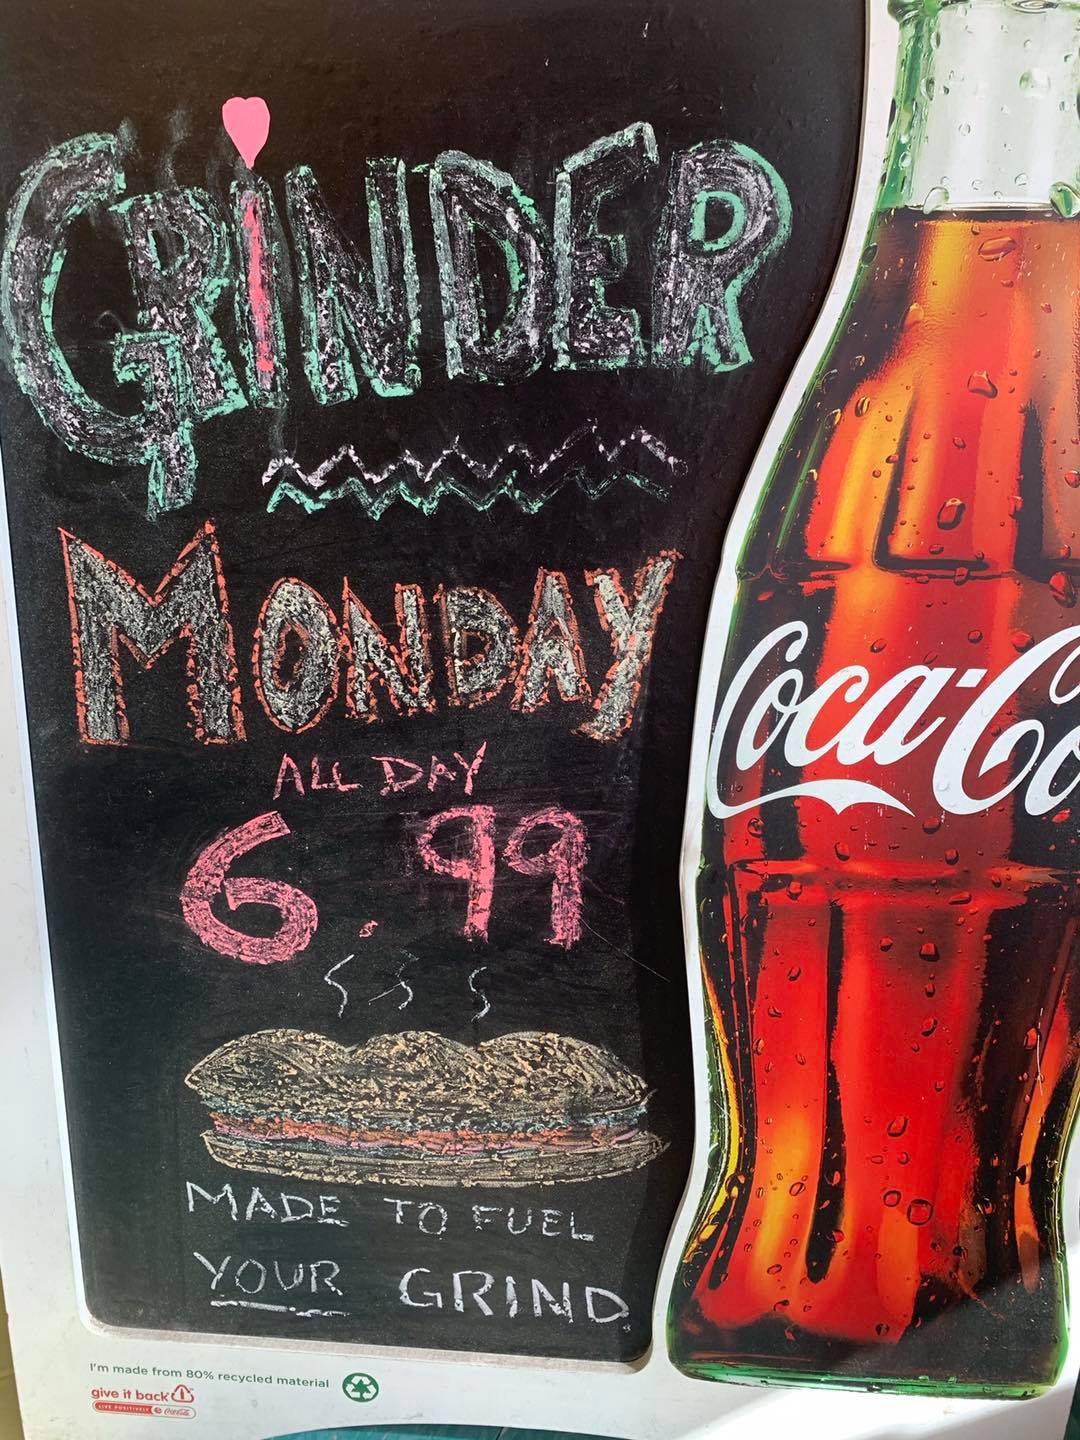 GRiNDER
MONDAY
ALL DAY
6.99
MADE TO FUEL
YOUR GRIND
Coca-Co
I'm made from 80% recycled material
give it back
LIVE POSITIVELY Coca-Cola